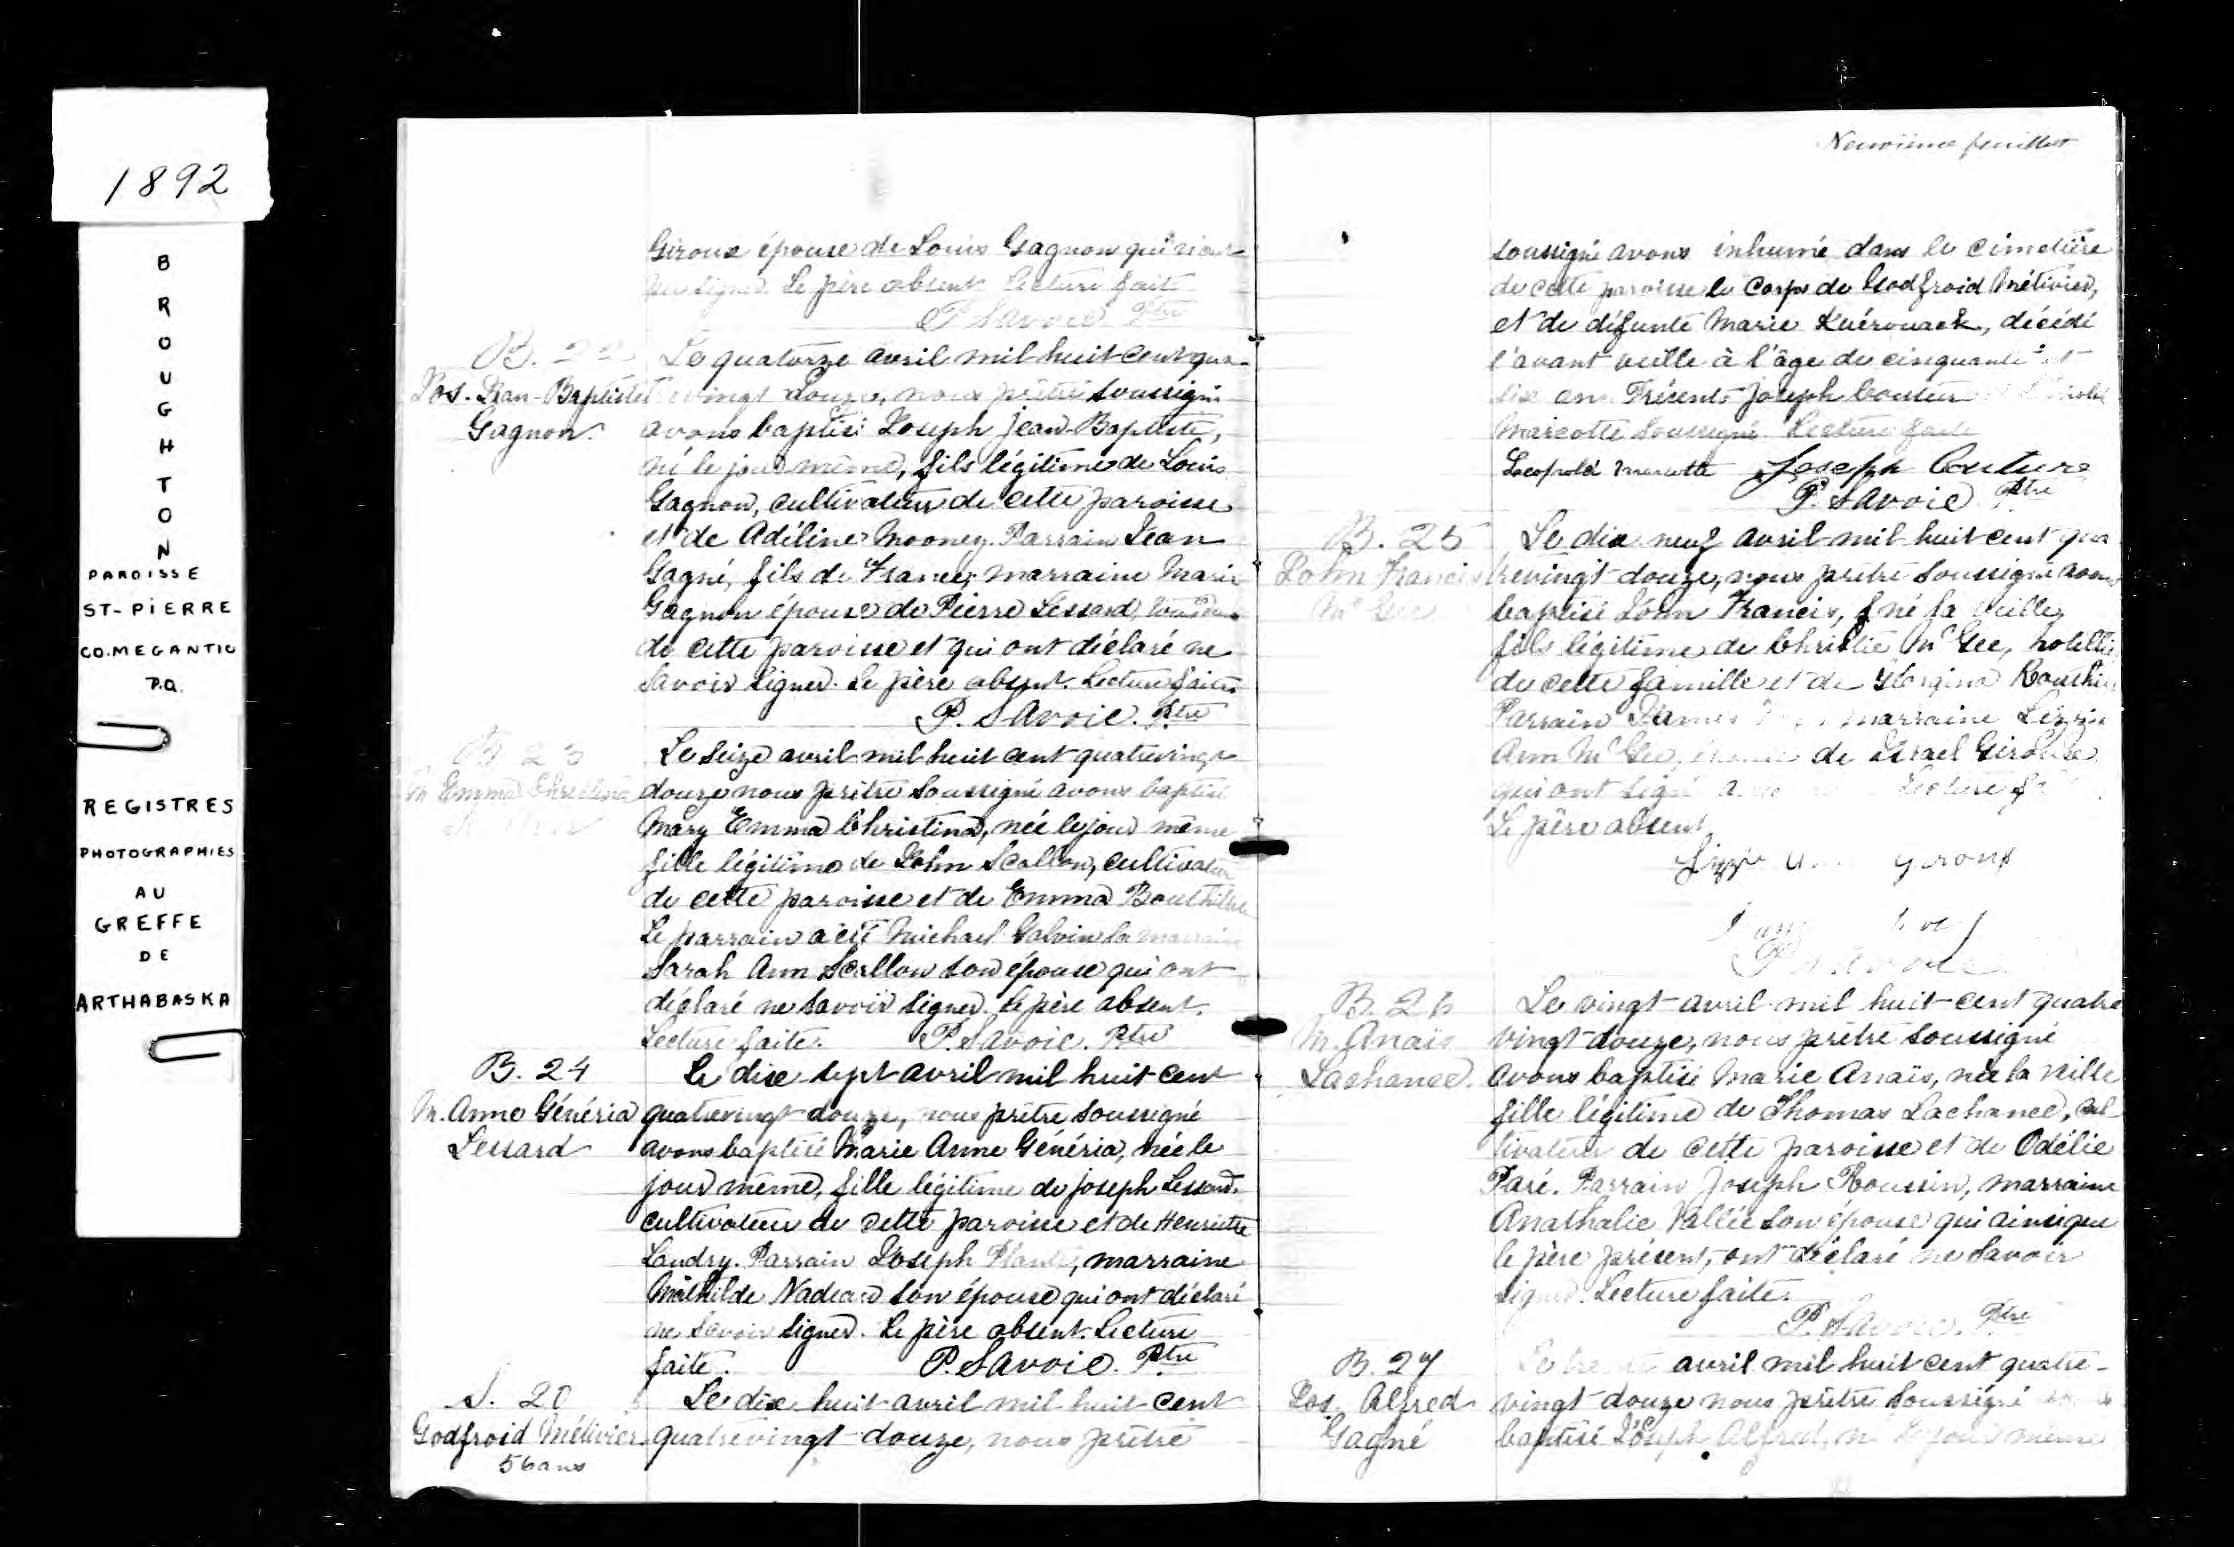 1892
BROUGHTON
PAROISSE
ST-PIERRE
CO.MEGANTIC
P.Q.
REGISTRES
PHOTOGRAPHIES
AU
GREFFE
DE
ARTHABASKA
Giroux épouse de Louis Gagnon qui
signer. Le père absent. Lecture faite
P. Savoie. Ptre
B. 22
Jos. Jean-Baptiste
Gagnon.
Le quatorze avril mil huit cent qua-
trevingt douze, nous prêtre soussigné
avons baptisé Joseph Jean-Baptiste,
né le jour même, fils légitime de Louis
Gagnon, cultivateur de cette paroisse
et de Adéline Mooney. Parrain Jean
Gagné, fils de Francis; marraine Marie
Gagnon épouse de Pierre Lessard, tous deux
de cette paroisse et qui ont déclaré ne
savoir signer. Le père absent. Lecture faite.
P. Savoie. Ptre
B. 23
M. Emma Christina
Le seize avril mil huit cent quatrevingt
douze nous prêtre soussigné avons baptisé
Mary Emma Christina, née le jour même
fille légitime de John Scallon, cultivateur
de cette paroisse et de Emma Bouthillier
Le parrain a été Michael Galvin la marraine
Sarah Ann Scallon son épouse qui ont
déclaré ne savoir signer. Le père absent.
Lecture faite. P. Savoie. Ptre
B. 24
M. Anne Généria
Lessard
Le dix sept avril mil huit cent
quatrevingt douze, nous prêtre soussigné
avons baptisé Marie Anne Généria, née le
jour même, fille légitime de Joseph Lessard,
cultivateur de cette paroisse et de Henriette
Landry. Parrain Joseph Plante, marraine
Mathilde Nadeau son épouse qui ont déclaré
ne savoir signer. Le père absent. Lecture
faite. P. Savoie. Ptre
S. 20
Godfroid Métivier
56 ans
Le dix huit avril mil huit cent
quatrevingt douze, nous prêtre
Neuvième feuillet
soussigné avons inhumé dans le cimetière
de cette paroisse le corps de Godfroid Métivier,
et de défunte Marie Kuérouack, décédé
l'avant veille à l'âge de cinquante et
six ans. Présents Joseph Couture et Léopold
Marcotte soussigné. Lecture faite
Leopold Marcotte Joseph Couture
P. Savoie. Ptre
B. 25
John Francis
Mc Gee
Le dix neuf avril mil huit cent qua
trevingt douze, nous prêtre soussigné avons
baptisé John Francis, né la veille,
fils légitime de Christie McGee, hotellier
de cette famille et de Georgina
Parrain James marraine Lizzie
Ann McGee, épouse de Israel Giroux
qui ont signé Lecture
Le père absent.
Lizzie Giroux
P. Savoie
B. 26
M. Anaïs
Lachance.
Le vingt avril mil huit cent quatre
vingt douze, nous prêtre soussigné
avons baptisé Marie Anaïs, née la veille
fille légitime de Thomas Lachance, cul-
tivateur de cette paroisse et de Odélie
Paré. Parrain Joseph Roussin, marraine
Anathalie Vallée son épouse qui ainsi que
le père présent, ont déclaré ne savoir
signer. Lecture faite.
P. Savoie. Ptre
B. 27
Jos. Alfred
Gagné
Le avril mil huit cent quatre-
vingt douze nous prêtre soussigné avons
baptisé Joseph Alfred, né le jour même